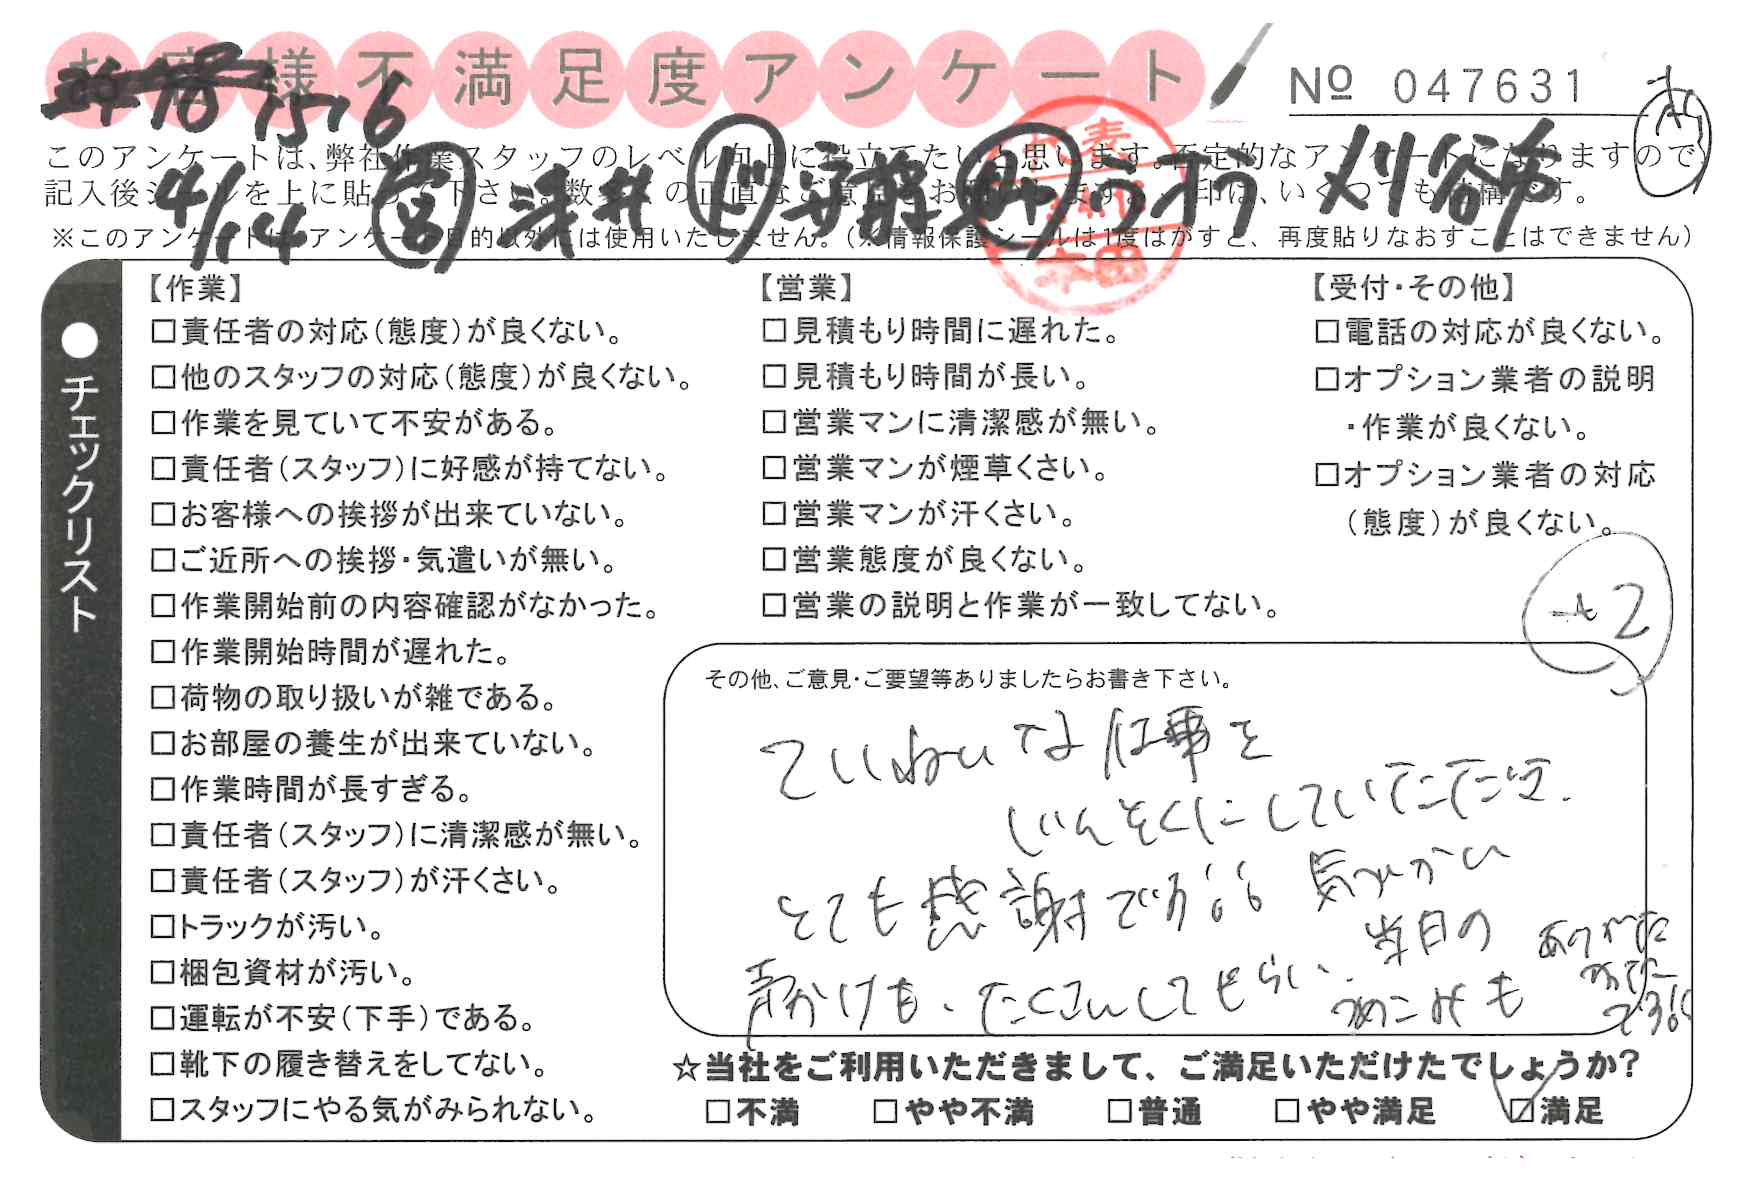 お客様不満足度アンケート
№ 047631
1576
このアンケートは、弊社作業スタッフのレベル向上に役立てたいと思います。否定的なアンケートになりますので、
記入後シールを上に貼って下さい。数多くの正直なご意見をお願いします。レ印は、いくつでも結構です。
4/14 営 浅井 ド 安藤 刈谷市
※このアンケートは、アンケート目的以外には使用いたしません。(※情報保護シールは1度はがすと、再度貼りなおすことはできません)
●チェックリスト
【作業】
□責任者の対応(態度)が良くない。
□他のスタッフの対応(態度)が良くない。
□作業を見ていて不安がある。
□責任者(スタッフ)に好感が持てない。
□お客様への挨拶が出来ていない。
□ご近所への挨拶・気遣いが無い。
□作業開始前の内容確認がなかった。
□作業開始時間が遅れた。
□荷物の取り扱いが雑である。
□お部屋の養生が出来ていない。
□作業時間が長すぎる。
□責任者(スタッフ)に清潔感が無い。
□責任者(スタッフ)が汗くさい。
□トラックが汚い。
□梱包資材が汚い。
□運転が不安(下手)である。
□靴下の履き替えをしてない。
□スタッフにやる気がみられない。
【営業】
□見積もり時間に遅れた。
□見積もり時間が長い。
□営業マンに清潔感が無い。
□営業マンが煙草くさい。
□営業マンが汗くさい。
□営業態度が良くない。
□営業の説明と作業が一致してない。
【受付・その他】
□電話の対応が良くない。
□オプション業者の説明
・作業が良くない。
□オプション業者の対応
(態度)が良くない。
その他、ご意見・ご要望等ありましたらお書き下さい。
ていねいな仕事を
じんそくにしていただいて、
とても感謝です。気づかい
声かけも、たくさんしてもらい、当日の
つめこみも ありがたかったです!!
☆当社をご利用いただきまして、ご満足いただけたでしょうか?
□不満 □やや不満 □普通 □やや満足 ☑満足